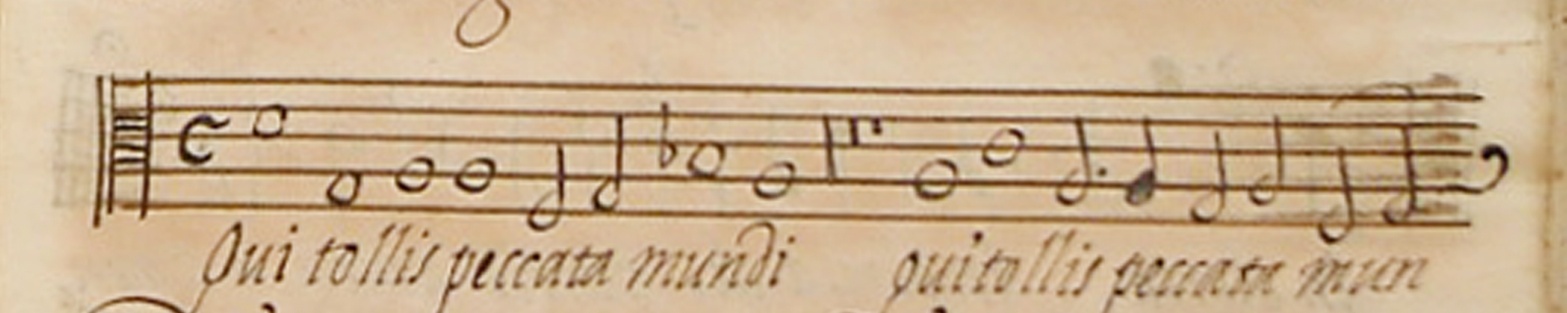 Qui tollis peccata mundi qui tollis peccata mun